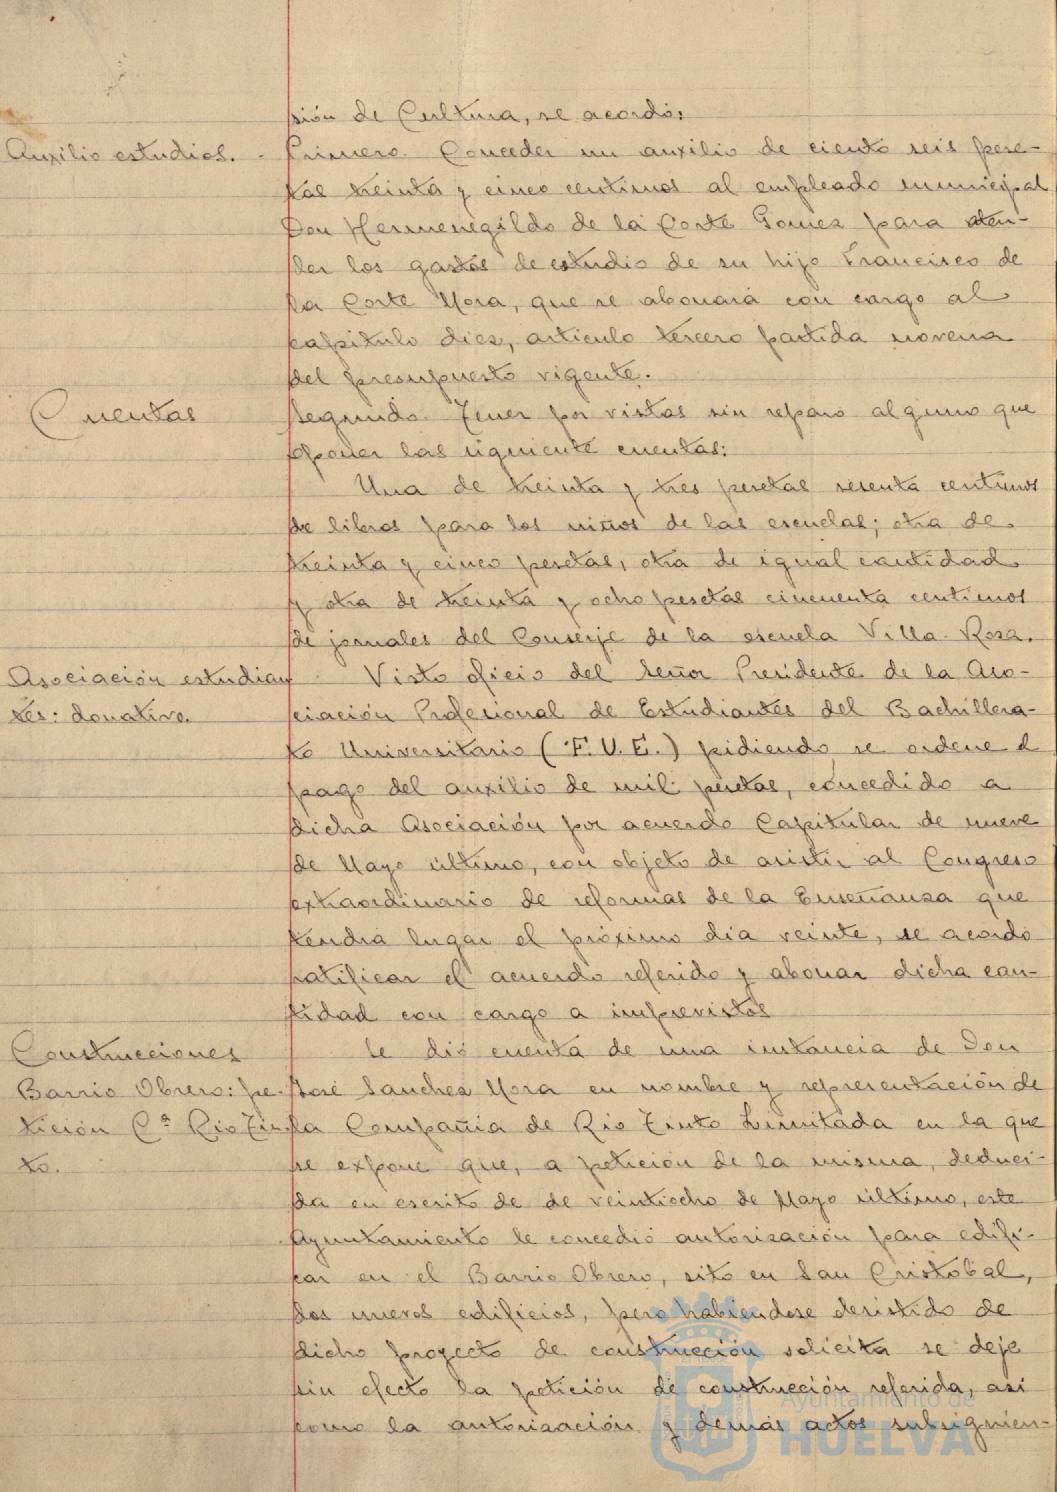 sión de Cultura, se acordó:
Auxilio estudios. - Primero. Conceder un auxilio de ciento seis pese-
tas treinta y cinco centimos al empleado municipal
Don Hermenegildo de la Corte Gomez para aten-
der los gastos de estudio de su hijo Francisco de
la Corte Mora, que se abonará con cargo al
capitulo diez, articulo tercero partida novena
del presupuesto vigente.
Cuentas Segundo. Tener por vistas sin reparo alguno que
oponer las siguiente cuentas:
Una de treinta y tres pesetas sesenta centimos
de libros para los niños de las escuelas; otra de
treinta y cinco pesetas, otra de igual cantidad
y otra de treinta y ocho pesetas cincuenta centimos
de jornales del Conserje de la escuela Villa Rosa.
Asociación estudian Visto oficio del Señor Presidente de la Aso-
tes: donativo. ciación Profesional de Estudiantes del Bachillera-
to Universitario (F.U.E.) pidiendo se ordene el
pago del auxilio de mil pesetas, concedido a
dicha Asociación por acuerdo Capitular de nueve
de Mayo último, con objeto de asistir al Congreso
extraordinario de reformas de la Enseñanza que
tendrá lugar el próximo dia veinte, se acordó
ratificar el acuerdo referido y abonar dicha can-
tidad con cargo a imprevistos
Construcciones Se dió cuenta de una instancia de Don
Barrio Obrero: pe- José Sanchez Mora en nombre y representación de
tición Cª Rio Tin- la Compañia de Rio Tinto Limitada en la que
to. se expone que, a petición de la misma, deduci-
da en escrito de de veintiocho de Mayo último, este
Ayuntamiento le concedió autorización para edifi-
car en el Barrio Obrero, sito en San Cristobal,
dos nuevos edificios, pero habiendose desistido de
dicho proyecto de construcción solicita se deje
sin efecto la petición de construcción referida, asi
como la autorización y demás actos subsiguien-
Ayuntamiento de
HUELVA